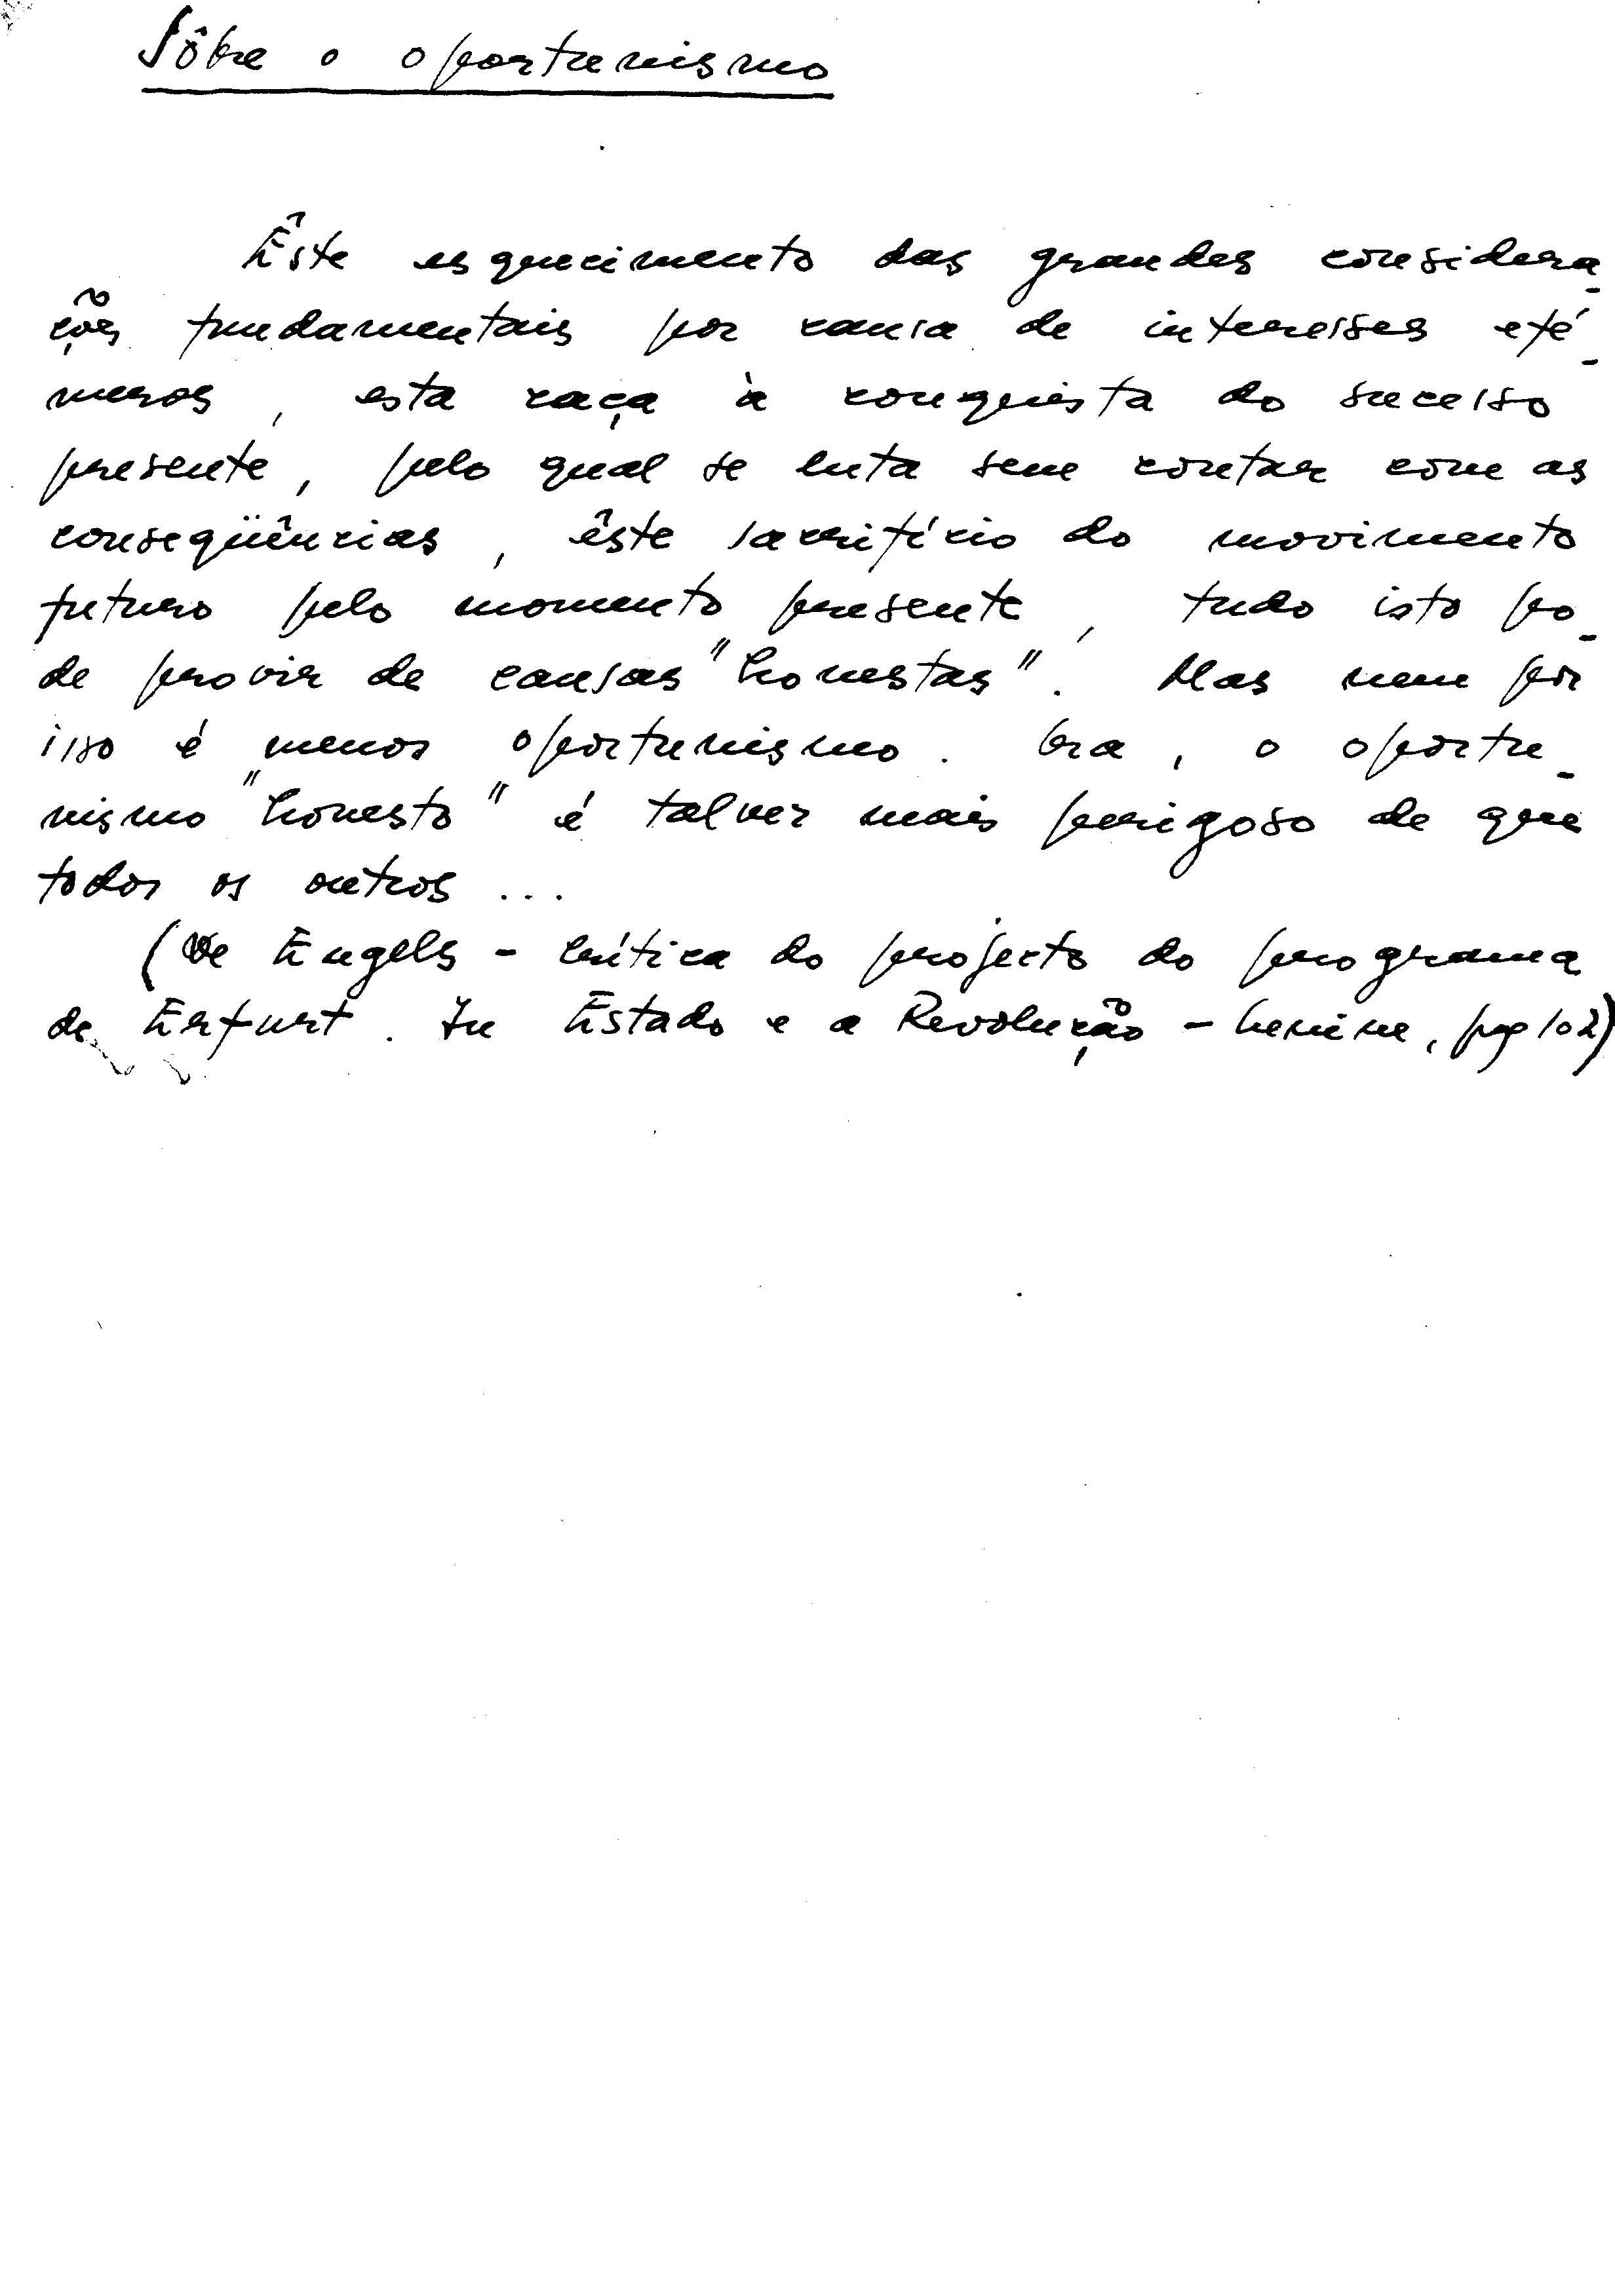 Sôbre o oportunismo
Êste esquecimento das grandes considera-
ções fundamentais por causa de interesses efé-
meros, esta caça à conquista do sucesso
presente, pelo qual se luta sem contar com as
conseqüências, êste sacrifício do movimento
futuro pelo momento presente, tudo isto po-
de provir de causas "honestas". Mas nem por
isso é menos oportunismo. Ora, o oportu-
nismo "honesto" é talvez mais perigoso de que
todos os outros ...
(De Engels - Crítica do projecto do programa
de Erfurt. In Estado e a Revolução - Lenine, pag 102)